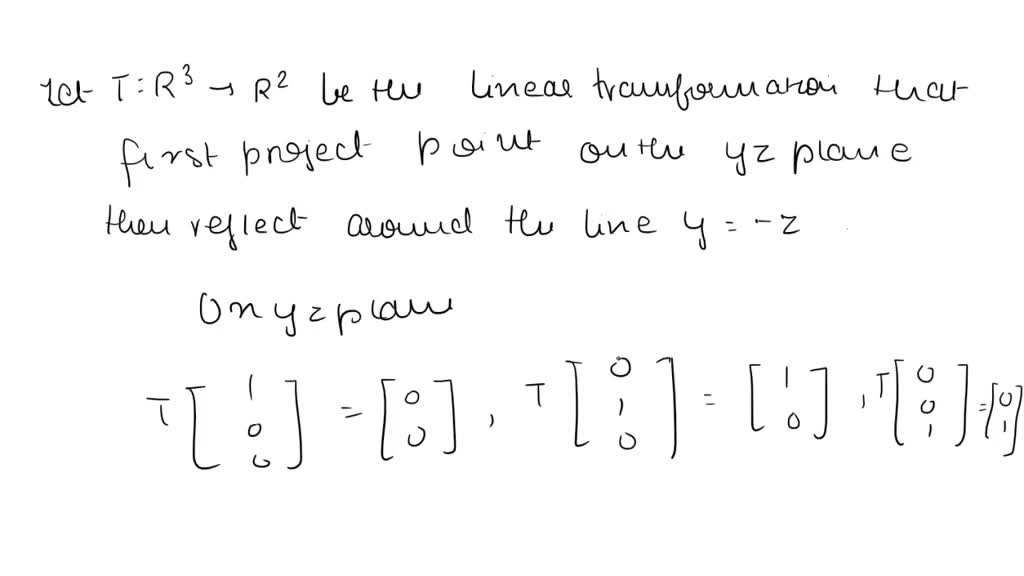 Let T: R³ → R² be the linear transformation that
first project point on the yz plane
then reflect around the line y = -z
On yz plane
T [1 0 0] = [0 0], T [0 1 0] = [1 0], T [0 0 1] = [0 1]